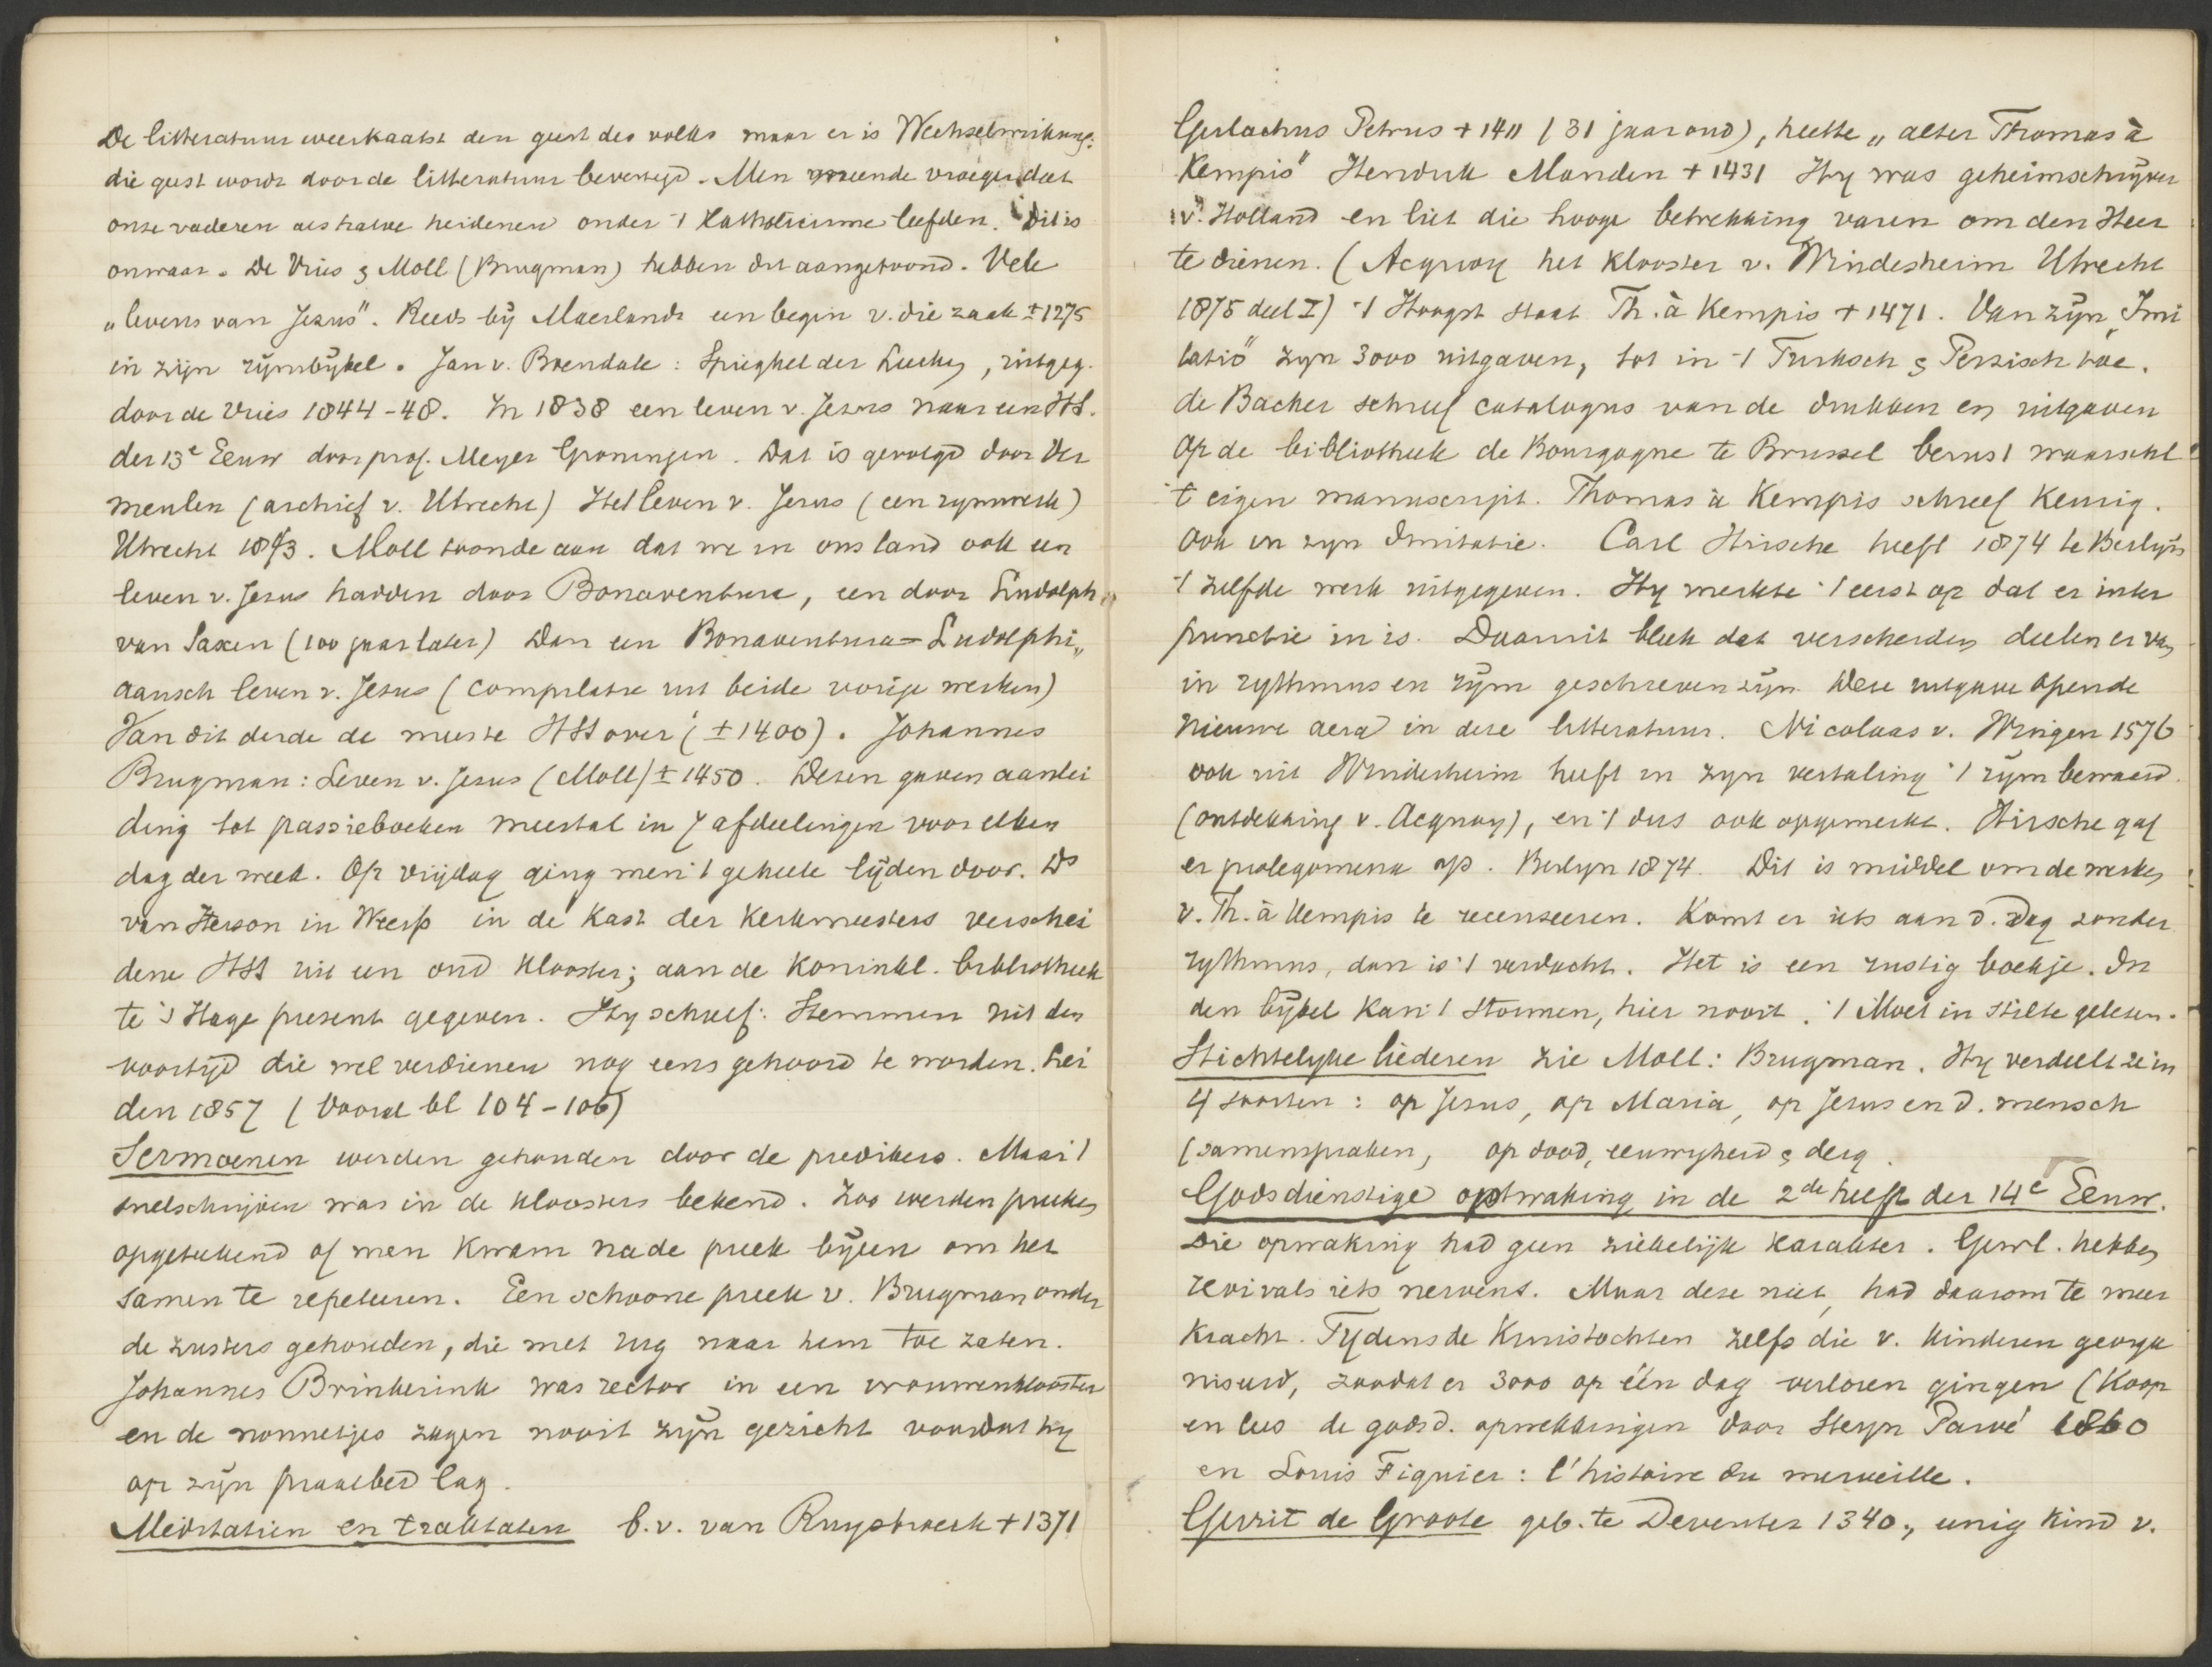 De litteratuur weerkaatst den geest des volks maar er is Wechselwirkung:
die geest wordt door de litteratuur bevestigd. Men meende vroeger dat
onze vaderen als halve heidenen onder 't Katholicisme leefden. Dit is
onwaar. De Vries & Moll (Brugman) hebben dit aangetoond. Vele
„levens van Jezus". Reeds bij Maerlandt een begin v. die zaak ± 1275
in zijn rijmbijbel. Jan v. Boendale: Spieghel der Leeken, uitgeg.
door de Vries 1844-48. In 1838 een leven v. Jezus naar een HS.
der 13e Eeuw door prof. Meyer Groningen. Dat is gevolgd door Ver
meulen (archief v. Utrecht) Het leven v. Jezus (een rymwerk)
Utrecht 1873. Moll toonde aan dat we in ons land ook een
leven v. Jezus hadden door Bonaventura, een door Ludolph
van Saxen (100 jaar later) Dan een Bonaventura=Ludolphi„
aansch leven v. Jezus (compilatie uit beide vorige werken)
Van dit derde de meeste HSS over (± 1400). Johannes
Brugman: Leven v. Jezus (Moll) ± 1450. Dezen gaven aanlei
ding tot passieboeken meestal in 7 afdeelingen voor elken
dag der week. Op vrijdag ging men 't geheele lijden door. Ds
van Herson in Weesp in de kast der kerkmeesters verschei
dene HSS uit een oud klooster; aan de koninkl. bibliotheek
te 's Hage present gegeven. Hy schreef: Stemmen uit den
voortijd die wel verdienen nog eens gehoord te worden. Lei
den 1857 (Vooral bl 104-106)
Sermoenen werden gehouden door de predikers. Maar 't
snelschrijven was in de kloosters bekend. Zoo werden preken
opgeteekend of men kwam na de preek bijeen om het
samen te repeteeren. Een schoone preek v. Brugman onder
de zusters gehouden, die met rug naar hem toe zaten.
Johannes Brinkerink was rector in een vrouwenklooster
en de nonnetjes zagen nooit zijn gezicht voordat hy
op zijn praalbed lag.
Meditatien en traktaten b.v. van Ruysbroeck + 1371
Gerlachus Petrus + 1411 (31 jaar oud), heette „alter Thomas à
Kempis" Hendrik Manden + 1431 Hy was geheimschrijver
v. Holland en liet die hooge betrekking varen om den Heer
te dienen. (Acquoy het klooster v. Windesheim Utrecht
1875 deel I) 't Hoogst staat Th. à Kempis + 1471. Van zijn „Imi
tatio" zyn 3000 uitgaven, tot in 't Turksch & Perzisch toe.
de Backer schreef catalogus van de drukken en uitgaven
Op de bibliotheek de Bourgogne te Brussel berust waarschl
't eigen manuscript. Thomas à Kempis schreef keurig.
Ook in zyn Imitatie. Carl Hirsche heeft 1874 te Berlijn
't zelfde werk uitgegeven. Hy merkte 't eerst op dat er inter
punctie in is. Daaruit bleek dat verscheiden deelen er van
in rythmus en rijm geschreven zijn. Deze uitgave opende
nieuwe aera in deze litteratuur. Nicolaas v. Wingen 1576
ook uit Windesheim heeft in zyn vertaling 't rijm bewaard.
(ontdekking v. Acquoy), en 't dus ook opgemerkt. Hirsche gaf
er prolegomena op. Berlyn 1874. Dit is middel om de werken
v. Th. à Kempis te recenseeren. Komt er iets aan d. dag zonder
rythmus, dan is 't verdacht. Het is een rustig boekje. In
den bijbel kan 't stormen, hier nooit. 't Moet in stilte gelezen.
Stichtelyke liederen zie Moll: Brugman. Hy verdeelt ze in
4 soorten: op Jezus, op Maria, op Jezus en d. mensch
(samenspraken, op dood, eeuwigheid & derg.
Godsdienstige optwaking in de 2de helft der 14e Eeuw.
Die opwaking had geen ziekelijk karakter. Gewl. hebben
revivals iets nerveus. Maar deze niet, had daarom te meer
kracht. Tydens de Kruistochten zelfs die v. kinderen georga
niseerd, zoodat er 3000 op één dag verloren gingen (Koop
en lees de godsd. opwekkingen door Steyn Parvé 1860
en Louis Figuier: l'histoire du merveille.
Gerrit de Groote geb. te Deventer 1340., eenig kind v.